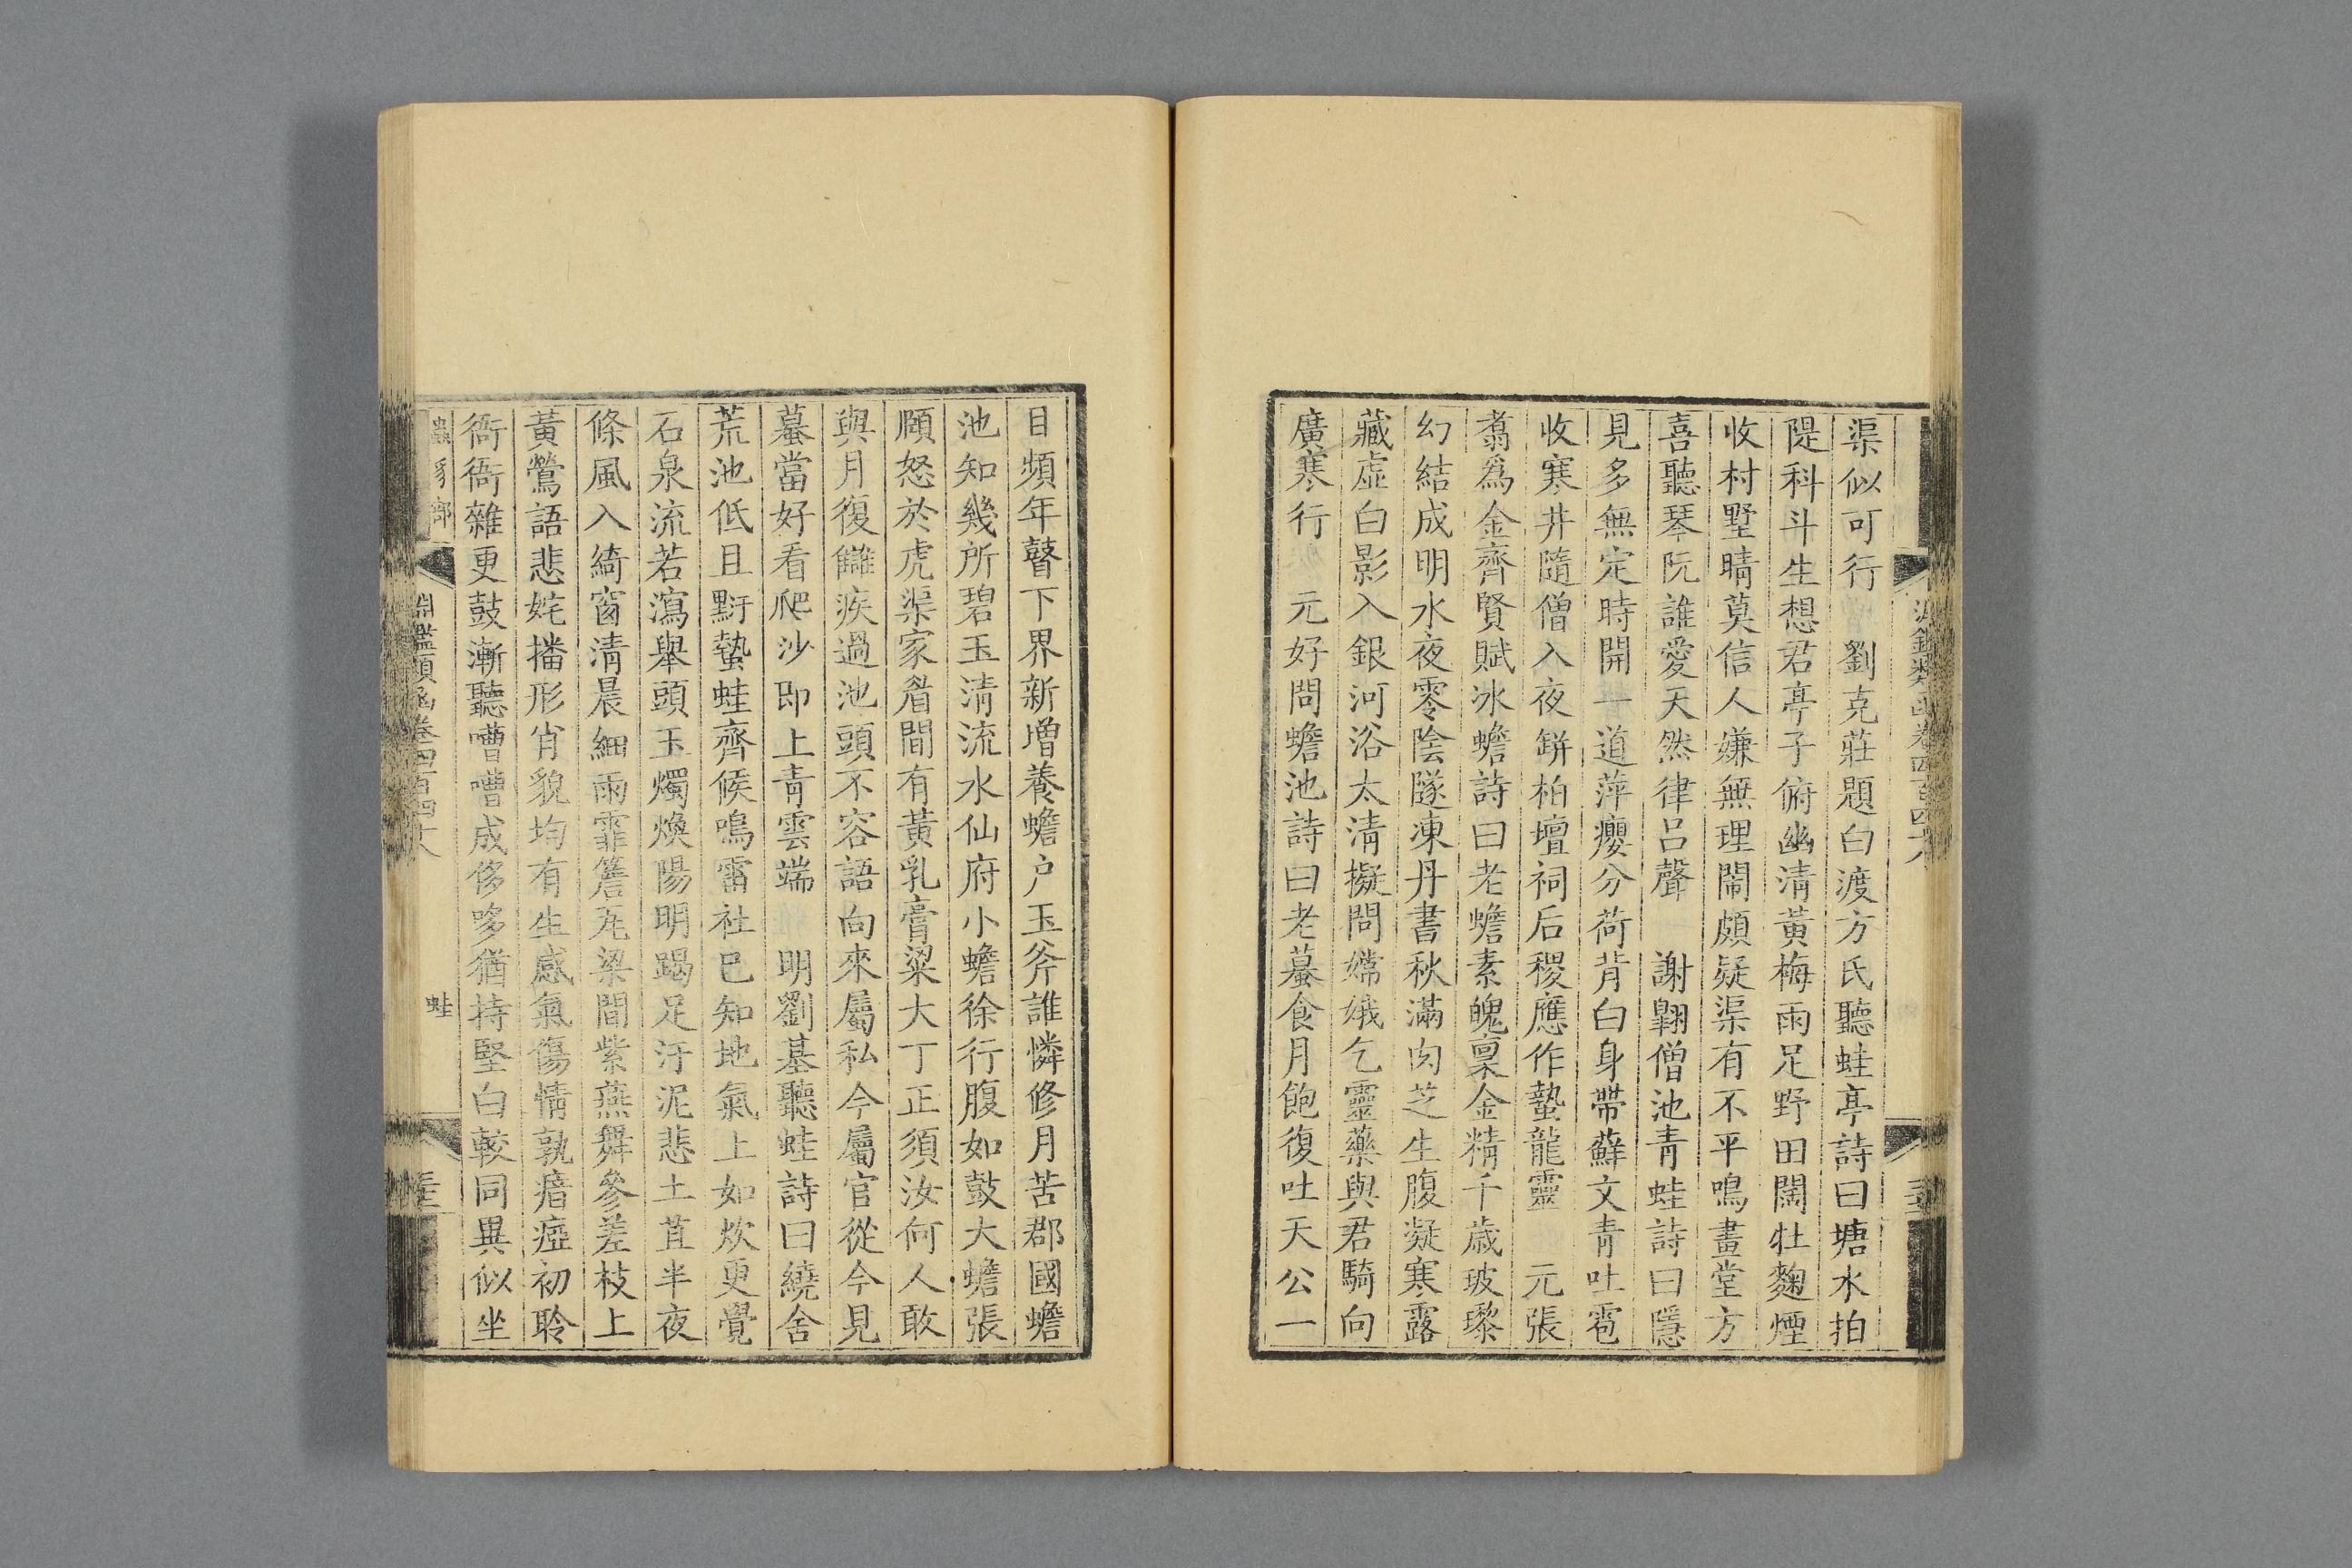 渠似可行　劉克莊題白渡方氏聽蛙亭詩曰塘水拍
隄科斗生想君亭子俯幽清黃梅雨足野田闊牡麴煙
收村墅晴莫信人嫌無理鬧頗疑渠有不平鳴畫堂方
喜聽琴阮誰愛天然律呂聲　謝翱僧池青蛙詩曰隱
見多無定時開一道萍癭分荷背白身帶蘚文青吐雹
收寒井隨僧入夜缾柏壇祠后稷應作蟄龍靈　元張
翥為金齊賢賦冰蟾詩曰老蟾素魄稟金精千歲玻瓈
幻結成明水夜零陰隧凍丹書秋滿肉芝生腹凝寒露
藏虛白影入銀河浴太清擬問嫦娥乞靈藥與君騎向
廣寒行　元好問蟾池詩曰老蟇食月飽復吐天公一
目頻年瞽下界新增養蟾户玉斧誰憐修月苦郡國蟾
池知幾所碧玉清流水仙府小蟾徐行腹如鼓大蟾張
頤怒於虎渠家眉間有黃乳膏粱大丁正須汝何人敢
與月復讎疾過池頭不容語向來屬私今屬官從今見
蟇當好看爬沙即上青雲端　明劉基聽蛙詩曰繞舍
荒池低且䵟蟄蛙齊候鳴雷社已知地氣上如炊更覺
石泉流若瀉舉頭玉燭煥陽明蹋足汙泥悲土苴半夜
條風入綺窗清晨細雨霏簷瓦梁間紫燕舞參差枝上
黃鶯語悲姹播形肖貌均有生感氣傷情孰瘖瘂初聆
衙衙雜更鼓漸聽嘈嘈成侈哆猶持堅白較同異似坐
蟲豸部
淵鑑類函卷四百四十八
蛙